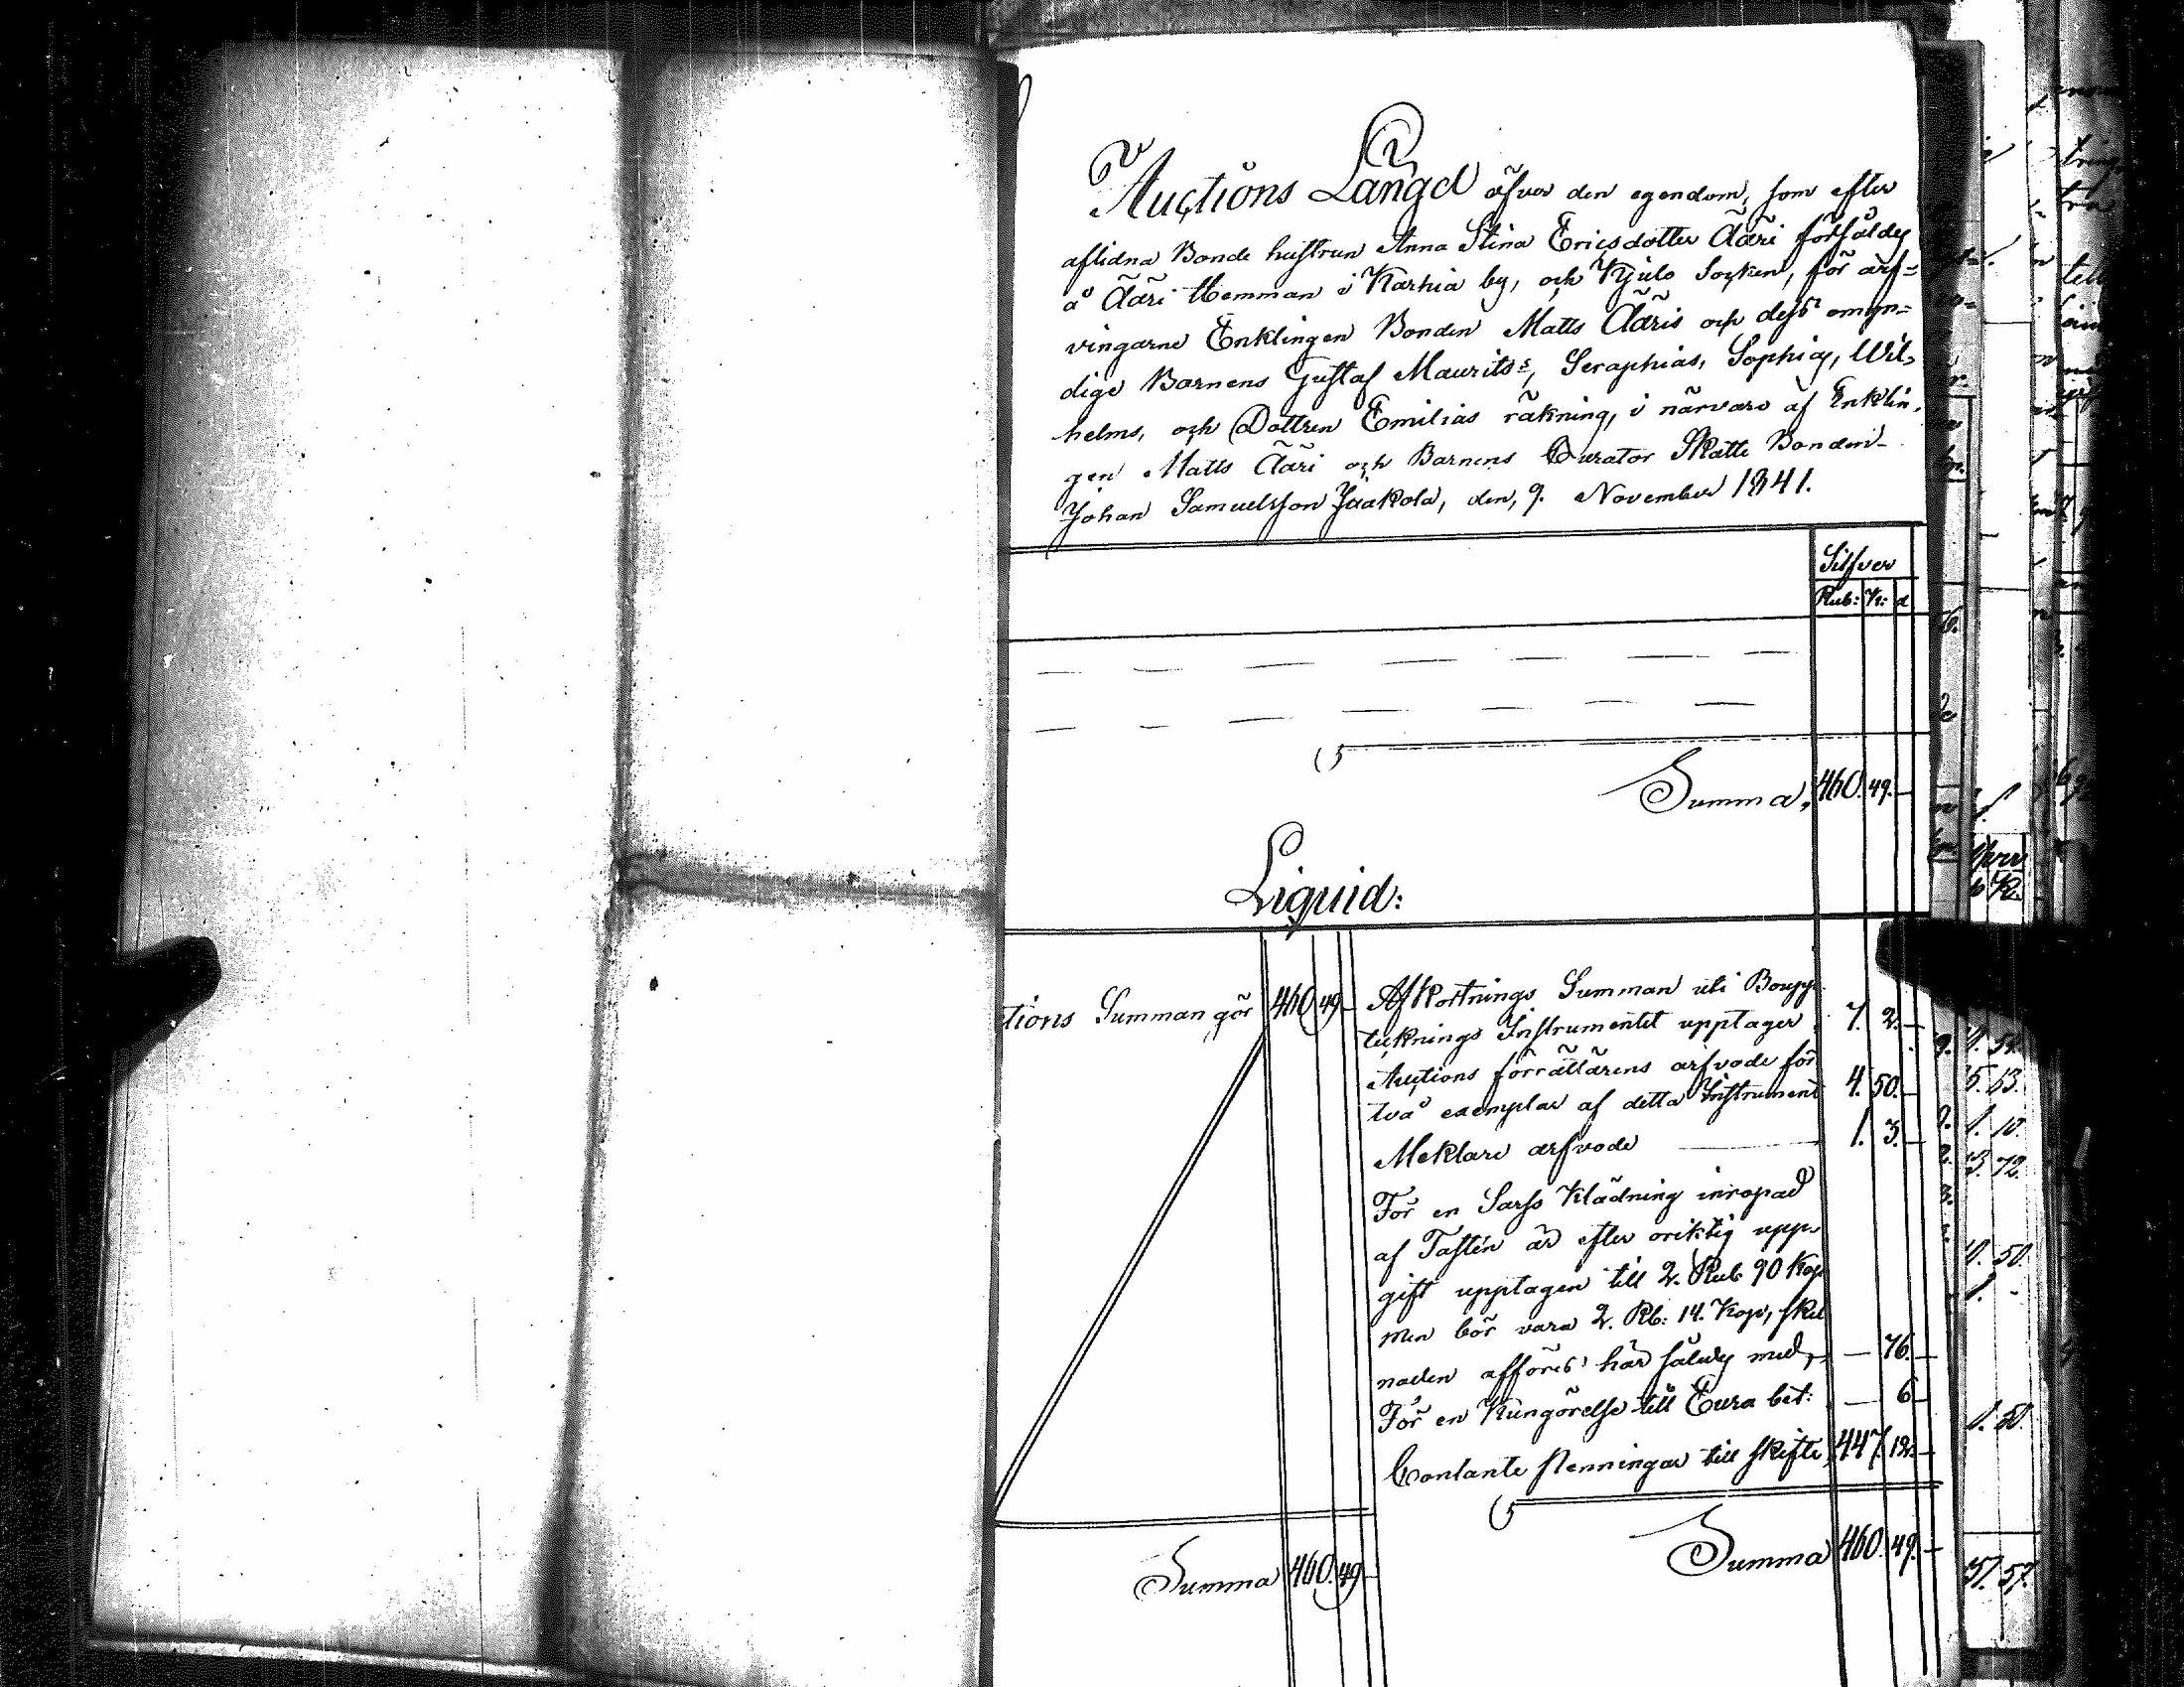 Auctions Längd öfver den egendom, som efter
aflidna Bonde hustrun Anna Stina Ericsdotter Ääri försåldes
å Ääri Hemman i Karhia by, och Kjulo Socken, för arf-
vingarne Enklingen Bonden Matts Ääris och dess omyn-
dige Barnens Gustaf Maurits:s, Seraphias, Sophias, Wil-
helms, och Dottren Emilias räkning, i närvaro af Enklin-
gen Matts Ääri och Barnens Curator Skatte Bonden
Johan Samuelsson Jaakola, den, 9. November 1841.
Silfver
Rub: K: d
Summa, 460. 49. —
Liquid:
tions Summan gör 460 49 —
Afkortnings Summan uti Boupp
tecknings Instrumentet upptager 7. 2. —
Auctions förrättarens arfvode för
två exemplar af detta Instrument 4. 50. —
Meklare arfvode 1. 3. —
För en Sarss Klädning inropad
af Tastén är efter oriktig upp-
gift upptagen till 2. Rub 90 Kop
men bör vara 2. Rb: 14. Kop, skil
naden afföres här således med, — 76. —
För en Kungörelse till Eura bet: — 6 —
Contante penningar till skifte 447. 12. —
Summa 460. 49 —
Summa 460. 49. —